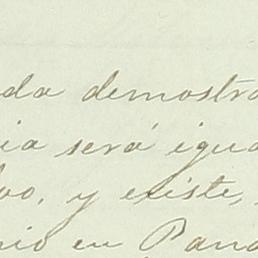 da demostra
ia será igua
y existe,
nio en Pana